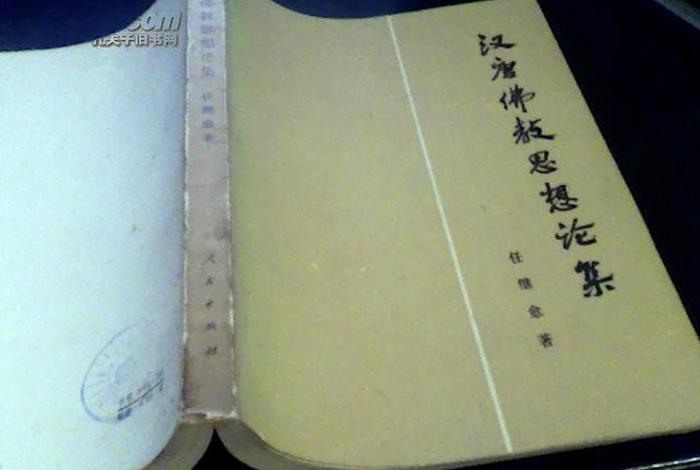 汉唐佛教思想论集
任继愈著
佛教思想论集 任继愈著
人民出版社
.com
九天子旧书网